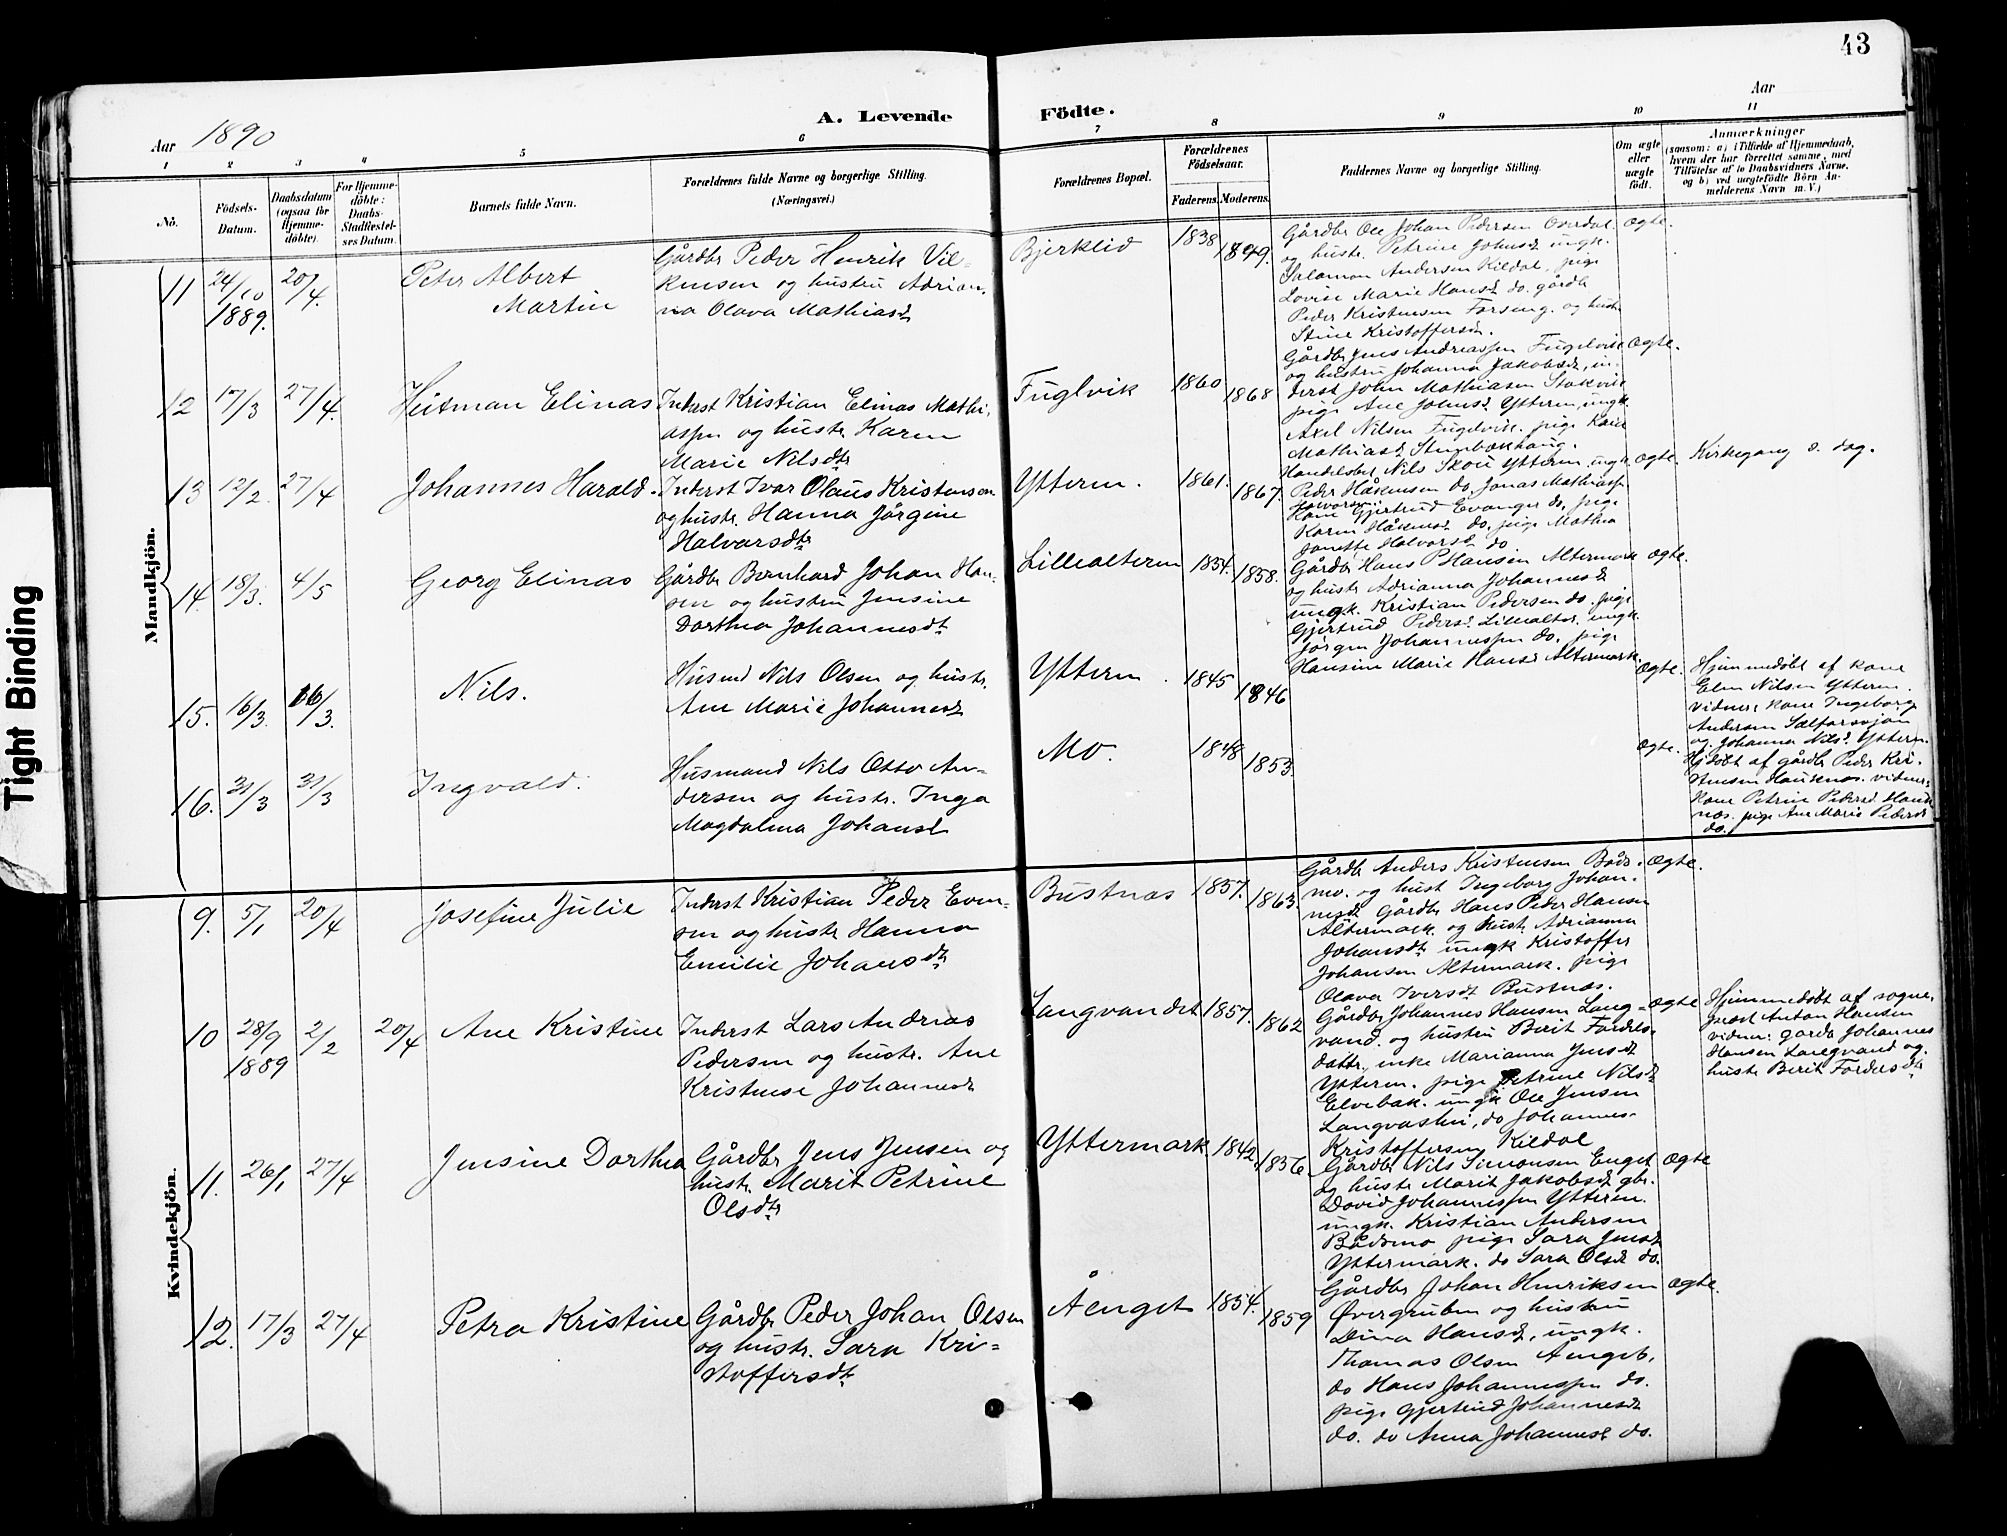 43
Aar 1890
A. Levende Födte.
Aar
1 2 3 4 5 6 7 8 9 10 11
No.
Födsels-Datum.
Daabsdatum (ogsaa for Hjemme-döbte).
For Hjemme-döbte: Daabs-Stadfæstel-ses Datum.
Barnets fulde Navn.
Forældrenes fulde Navne og borgerlige Stilling.
(Næringsvei.)
Forældrenes Bopæl.
Forældrenes Födselsaar.
Faderens. Moderens.
Faddernes Navne og borgerlige Stilling.
Om ægte eller uægte födt.
Anmærkninger
(saasom: a) i Tilfælde af Hjemmedaab, hvem der har forrettet samme, med Tilföielse af to Daabsvidners Navne, og b) ved uægtefödte Börn An-melderens Navn m. V.)
Tight Binding
Mandkjön.
11 24/10 1889. 20/4.
Peter Albert
Martin
Gårdbr Peder Henrik Vil-
kensen og hustru Adrian-
na Olava Mathiasd
Bjerklid 1838 1849.
Gårdbr Ole Johan Pedersen Overdal
og hustr. Petrine Johnsd ungk.
Salamon Andersen Kildal, pige
Lovise Marie Hansd do. gårdb
Peder Kristensen Forseng. og hustr
Stine Kristoffersd.
ægte.
12 17/3 27/4.
Heitman Elinas
Inderst Kristian Elinas Mathi-
assen og hustr. Karen
Marie Nilsdtr
Fuglvik 1860 1868
Gårdbr Jens Andreassen Fugelvik
og hustru Johanna Jakobsd, in-
derst John Mathiasen Stokvik
pige Ane Johnsd. Ytteren, ungk.
Axel Nilsen Fugelvik. pige Karen
Mathiasd
ægte.
13 12/2. 27/4
Johannes Harald.
Inderst Ivar Olaus Kristensen
og hustr. Hanna Jørgine
Halvorsdtr
Ytteren. 1861. 1867.
Handelsbet. Nils Skou Ytteren, ungk
Peder Håkensen do. Jonas Mathiassen
Kone Gjertrud Evanger do, pige
Karen Håkensd. do, pige Mathea
Janette Halvorsd. do
ægte.
Kirkegang s. dag.
14. 18/3. 4/5
Georg Elinas
Gårdbr Bernhard Johan Han-
sen og hustru Jensine
Dorthea Johannesdt
Lillealteren 1854. 1858.
Gårdbr Hans P Hansen Altermark
og hustr Adrianna Johannesd
ungk. Kristian Pedersen do. pige
Gjertrud Pedersd. Lillealter. ungk.
Jørgen Johannessen do. pige
Hansine Marie Hansd Altermark
ægte.
15. 16/3. 16/3.
Nils.
Husmd Nils Olsen og hustr.
Ane Marie Johannesd
Ytteren. 1845 1846
ægte.
Hjemmedøbt af kone
Elen Nilsen Ytteren.
vidner: kone Ingeborg
Andersen
og Johanna Nilsd. Ytteren.
16. 31/3 31/3
Ingvald.
Husmand Nils Otto An-
dersen og hustr. Inga
Magdalena Johansd
Mo. 1848 1853.
ægte.
Hjdøbt af gårdb Peder Kri-
stensen Hausenæs. vidner:
kone Petrine Pedersd. Haus
næs. pige Ane Marie Pedersd
do.
Kvindekjön.
9. 5/1 20/4
Josefine Julie
Inderst Kristian Peder Even-
sen og hustr Hanna
Emilie Johansdtr
Bustnæs 1857. 1863.
Gårdbr Anders Kristensen Båds-
mo. og hust Ingeborg Johan-
nesd. Gårdbr Hans Peder Hansen
Altermark. og hust. Adrianna
Johansdt ungk Kristoffer
Johansen Altermark. pige
Olava Iversdt Bustnæs.
ægte.
10 28/9 1889 2/2 20/4
Ane Kristine
Inderst Lars Andreas
Pedersen og hustr. Ane
Kristense Johannesd
Langvandet 1857. 1862
Gårdbr Johannes Hansen Lang-
vand. og hustru Berit Fordels-
dattr. enke Marianna Jensd
Ytteren. pige Petrine Nilsd
Elvebak. ungk Ole Jensen
Langvashei, do Johannes
Kristoffersen Kildal
ægte
Hjemmedøbt af sogne-
prest Anton Hansen
vidner: gårdb Johannes
Hansen Langvand og
hustr Berit Fordelsdt
11. 26/1 27/4
Jensine Dorthea
Gårdbr Jens Jensen og
hustr. Marit Petrine
Olsdtr
Yttermark. 1842. 1856.
Gårdbr Nils Simonsen Enget
og hustr Marit Jakobsd. gbr.
David Johannessen Ytteren.
ungk. Kristian Andersen
Bådsmo pige Sara Jensd
Yttermark. do Sara Olsd do.
ægte
12. 17/3 27/4
Petra Kristine
Gårdbr Peder Johan Olsen
og hustr. Sara Kri-
stoffersdt
Åenget 1854. 1859
Gårdbr Johan Henriksen
Øvergruben og hustru
Dina Hansd, ungk.
Thomas Olsen Aenget,
do Hans Johannessen do.
pige Gjertrud Johannesd
do. do Anna Johannesd do.
ægte.